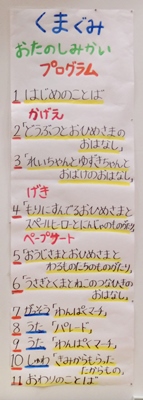 くまぐみ
おたのしみかい
プログラム
1 はじめのことば
かげえ
2 「どうぶつとおひめさまの
おはなし」
3 「れいちゃんとゆずきちゃんと
おばけのおはなし」
げき
4 「もりにすんでるおひめさまと
スペルヒーローとにんじゃのものがたり」
ペープサート
5 「おうじさまとおひめさまと
わるものたちのものがたり」
6 「うさぎとくまとねこのつなひきの
おはなし」
7 がっそう「わんぱくマーチ」
8 うた 「パレード」
9 うた 「わんぱくマーチ」
10 しゅわ 「きみからもらった
たからもの」
11 おわりのことば